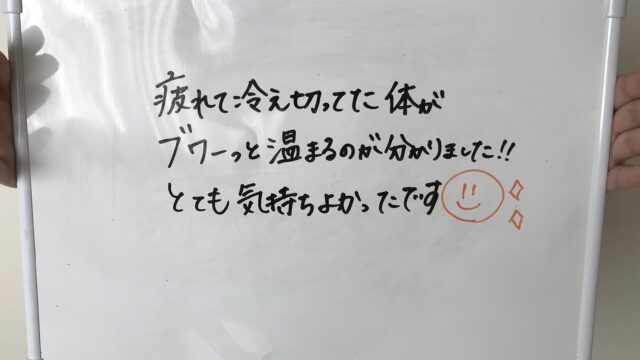 疲れて冷え切ってた体が
ブワーっと温まるのが分かりました!!
とても気持ちよかったです